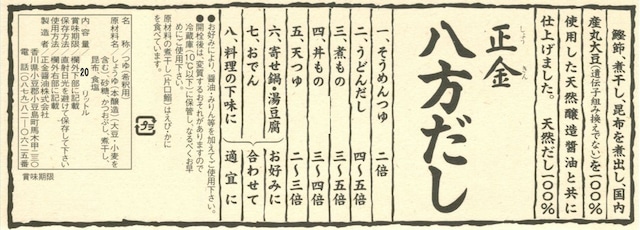 鰹節、煮干し、昆布を煮出し、国内
産丸大豆(遺伝子組み換えでない)を一〇〇%
使用した天然醸造醤油と共に
仕上げました。 天然だし一〇〇%
正金
しょう きん
八方だし
一、そうめんつゆ 二倍
二、うどんだし 四〜五倍
三、煮もの 四〜五倍
四、丼もの 三〜四倍
五、天つゆ 二〜三倍
六、寄せ鍋・湯豆腐 お好みに
七、おでん 合わせて
八、料理の下味に 適宜に
●お好みにより、醤油・みりん等を加えてご使用下さい。
●開栓後は、変質するおそれがありますので
冷蔵庫(10℃以下)に保管し、なるべくお早
めにご使用下さい。
原材料の煮干し(片口鰯)は、えび・かに
を食べています。
プラ
名称 つゆ(希釈用)
原材料名 しょうゆ(本醸造)(大豆・小麦を
含む)、砂糖、かつおぶし、煮干し、
昆布、食塩
内容量 20リットル
賞味期限 欄外下部に記載
保存方法 直射日光を避けて保存して下さい
使用方法 欄外右部に記載
製造者 正金醤油株式会社
香川県小豆郡小豆島町馬木甲二三〇
電話(〇八七九)八二-〇六二五番
賞味期限